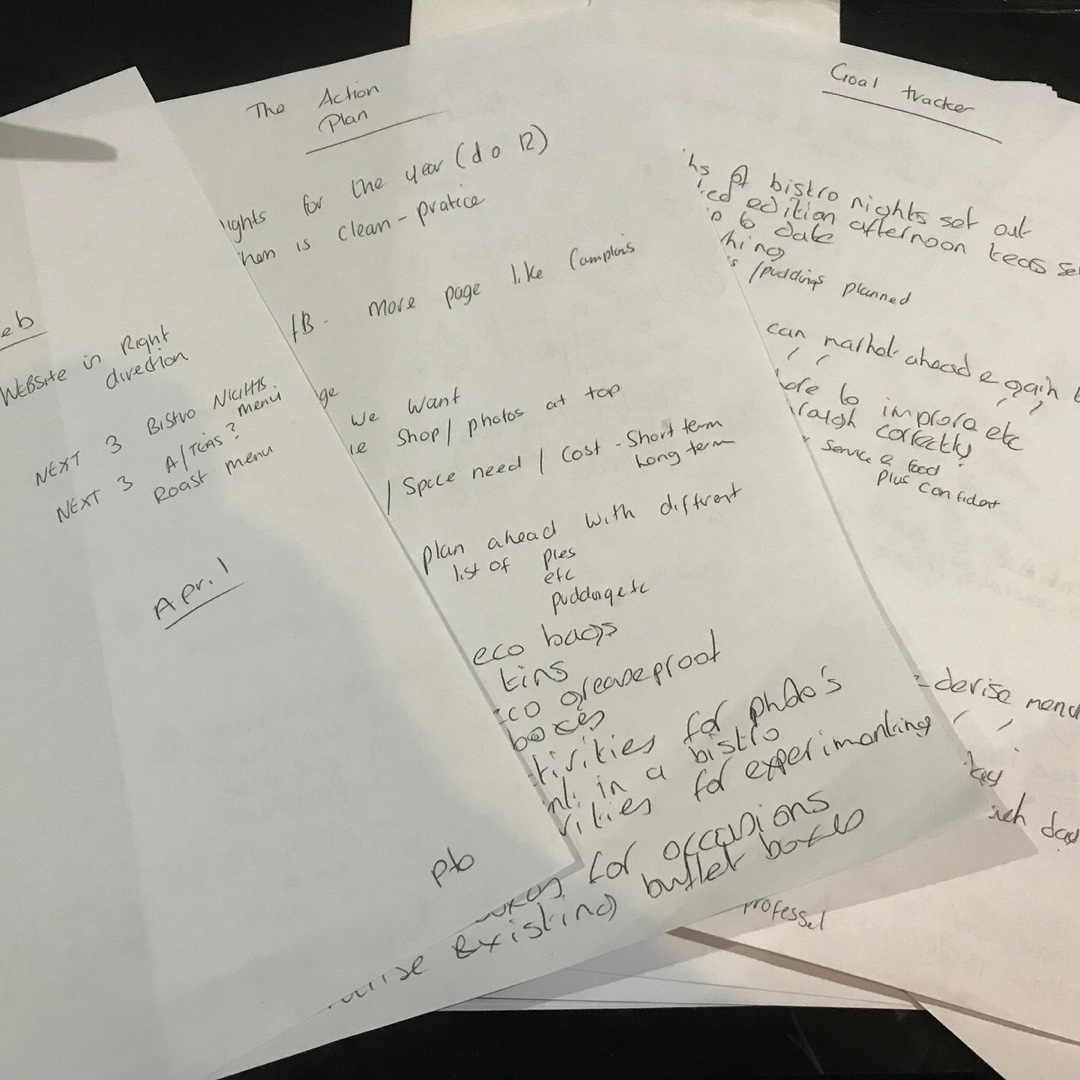 eb
WEBSITE in Right
direction
NEXT 3 BISTRO NIGHTS
NEXT 3 A/TEAS? menu
Roast menu
April
ptO
The Action
Plan
ights for the year (do 12)
hen is clean - pratice
fB - more page like Camplins
ge
we want
ie Shop / photos at top
/ Space need / Cost - Short term
Long term
plan ahead with different
list of pies
etc
pudding etc
eco bags
tins
co greaseproof
boxes
tivities for photo's
in a bistro
vities for experimonting
for occasions
existing buffet boxes
Goal tracker
hs of bistro nights set out
ed edition afternoon teas se
to date
hing
s / puddings planned
can market ahead & gain
ore to improve etc
correctly
Service & food
plus confident
- devise menu
day
professel